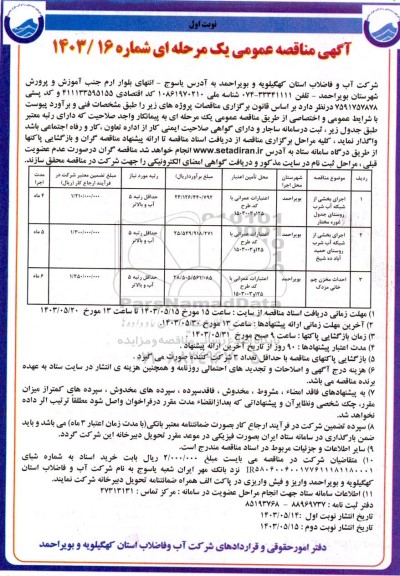 نوبت اول
آگهی مناقصه عمومی یک مرحله ای شماره ۱۶ /۱۴۰۳
شرکت آب و فاضلاب استان کهگیلویه و بویراحمد به آدرس یاسوج - انتهای بلوار ارم جنب آموزش و پرورش
شهرستان بویراحمد - تلفن ۳۳۳۴۱۱۱۱-۰۷۴ شناسه ملی ۱۰۸۶۱۹۷۰۲۱۰ کد اقتصادی ۴۱۱۱۳۳۵۹۵۱۵۵ و کد پستی
۷۵۹۱۷۵۷۸۷۸ درنظر دارد بر اساس قانون برگزاری مناقصات پروژه های زیر را طبق مشخصات فنی و برآورد پیوست
با شرایط عمومی و اختصاصی از طریق مناقصه عمومی یک مرحله ای به پیمانکار واجد صلاحیت که دارای رتبه معتبر
طبق جدول زیر ، ثبت درسامانه ساجار و دارای گواهی صلاحیت ایمنی کار از اداره تعاون ،کار و رفاه اجتماعی باشد
واگذار نماید ، کلیه مراحل برگزاری مناقصه از دریافت اسناد مناقصه تا ارائه پیشنهاد مناقصه گران و بازگشایی پاکتها
از طریق درگاه سامانه ستاد به آدرس www.setadiran.ir انجام خواهد شد مناقصه گران درصورت عدم عضویت
قبلی ، مراحل ثبت نام در سایت مذکور و دریافت گواهی امضای الکترونیکی را جهت شرکت در مناقصه محقق سازند.
ردیف موضوع مناقصه شهرستان محل اجرا محل تامین اعتبار مبلغ برآورد(ریال) رتبه مورد نیاز مبلغ تضمین معتبر شرکت در فرآیند ارجاع کار (ریال) مدت اجرا
۱ اجرای بخشی از شبکه آب شرب روستای جدول دوره مختار بویراحمد اعتبارات عمرانی با کد طرح حداقل رتبه ۵ آب و بالاتر ۱/۲۱۰/۰۰۰/۰۰۰ ۴ ماه
۲ اجرای بخشی از شبکه آب شرب روستای حمید آباد ده شیخ بویراحمد اعتبارات عمرانی با کد طرح حداقل رتبه ۵ آب و بالاتر ۱/۳۰۰/۰۰۰/۰۰۰ ۵ ماه
۳ احداث مخزن چم خانی مزدک بویراحمد اعتبارات عمرانی با کد طرح حداقل رتبه ۵ آب و بالاتر ۱/۴۵۰/۰۰۰/۰۰۰ ۶ ماه
۱) مهلت زمانی دریافت اسناد مناقصه از سایت : ساعت ۱۵ مورخ ۱۴۰۳/۰۵/۱۵ تا ساعت ۱۳ مورخ ۱۴۰۳/۰۵/۲۰
۲) آخرین مهلت زمانی ارائه پیشنهادها : ساعت ۱۳ مورخ ۱۴۰۳/۰۵/۳۰
۳) زمان بازگشایی پاکتها : ساعت ۹ صبح مورخ ۱۴۰۳/۰۵/۳۱
۴) مدت اعتبار پیشنهادها : ۹۰ روز از تاریخ آخرین ارائه پیشنهاد .
۵) بازگشایی پاکتهای مناقصه با حداقل تعداد ۳ شرکت کننده صورت می گیرد .
۶) هزینه درج آگهی و اصلاحات و تجدید های احتمالی روزنامه و همچنین هزینه ی انتشار در سایت ستاد به عهده
برنده مناقصه می باشد.
۷) به پیشنهادهای فاقد امضاء ، مشروط ، مخدوش ، فاقدسپرده ، سپرده های مخدوش ، سپرده های کمتراز میزان
مقرر، چک شخصی ونظایرآن و پیشنهاداتی که بعدازانقضاء مدت مقرر درفراخوان واصل شود مطلقا ترتیب اثر داده
نخواهد شد.
۸) سپرده تضمین شرکت در فرآیند ارجاع کار بصورت ضمانتنامه معتبر بانکی(با مدت زمان اعتبار ۳ ماه) می باشد و باید
ضمن بارگذاری در سامانه ستاد ایران بصورت فیزیکی در موعد مقرر تحویل دبیرخانه این شرکت گردد.
۹) سایر اطلاعات و جزئیات مربوط در اسناد مناقصه مندرج است.
۱۰) متقاضیان شرکت در مناقصه می بایست مبلغ ۲/۰۰۰/۰۰۰ ریال بابت خرید اسناد به شماره شبای
نزد بانک مهر ایران شعبه یاسوج به نام شرکت آب و فاضلاب استان
کهگیلویه و بویراحمد واریز و فیش واریزی در پاکت الف همراه ضمانتنامه تحویل دبیرخانه شرکت نمایند.
۱۱) اطلاعات سامانه ستاد جهت انجام مراحل عضویت در سامانه : مرکز تماس : ۲۷۳۱۳۱۳۱
دفتر ثبت نامه : ۸۸۹۶۹۷۳۷ - ۸۵۱۹۳۷۶۸
تاریخ انتشار نوبت اول : ۱۴۰۳/۰۵/۱۴
تاریخ انتشار نوبت دوم : ۱۴۰۳/۰۵/۱۵
دفتر امورحقوقی و قراردادهای شرکت آب وفاضلاب استان کهگیلویه و بویراحمد